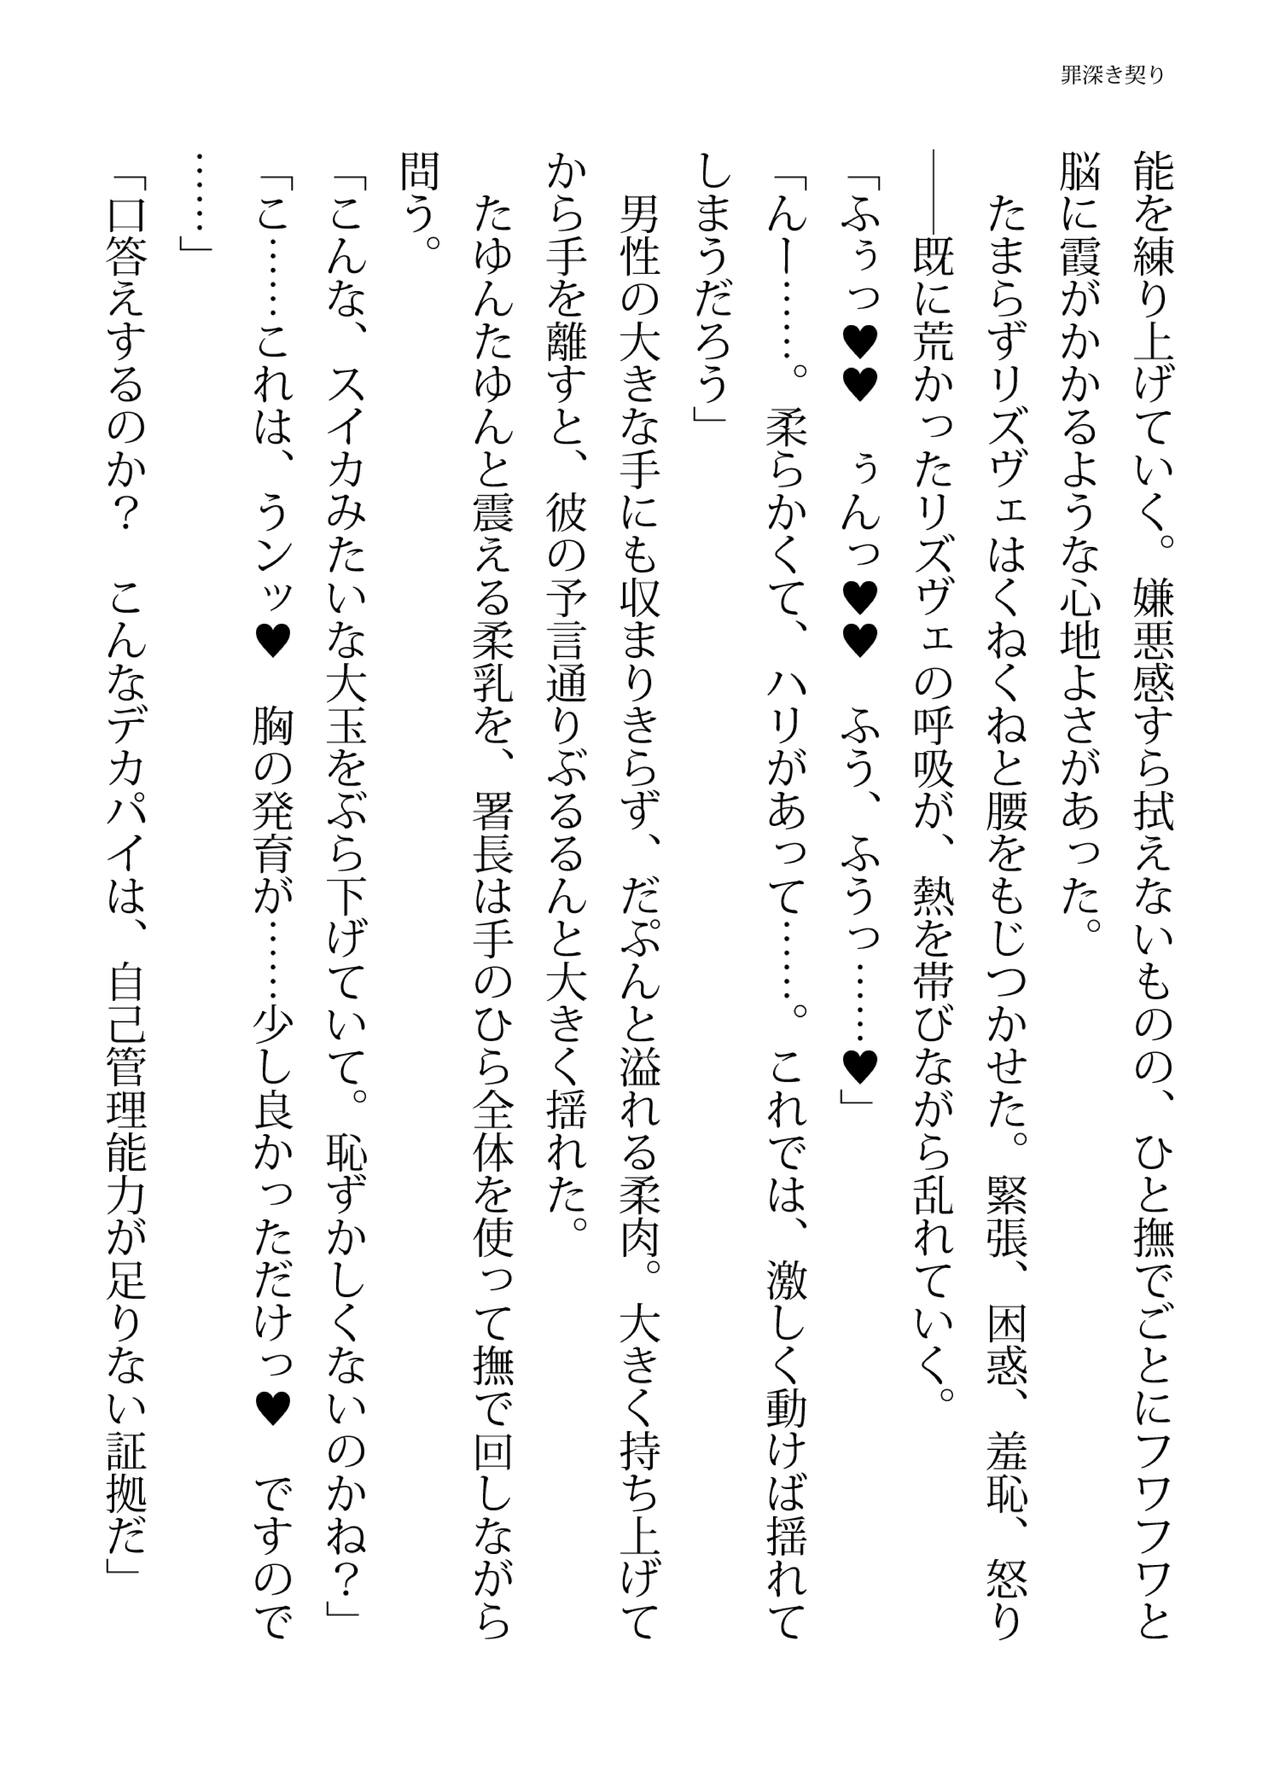 罪深き契り
能を練り上げていく。嫌悪感すら拭えないものの、ひと撫でごとにフワフワと
脳に霞がかかるような心地よさがあった。
　たまらずリズヴェはくねくねと腰をもじつかせた。緊張、困惑、羞恥、怒り
――既に荒かったリズヴェの呼吸が、熱を帯びながら乱れていく。
「ふぅっ♥♥　ぅんっ♥♥　ふう、ふうっ……♥」
「んー……。柔らかくて、ハリがあって……。これでは、激しく動けば揺れて
しまうだろう」
　男性の大きな手にも収まりきらず、だぷんと溢れる柔肉。大きく持ち上げて
から手を離すと、彼の予言通りぶるるんと大きく揺れた。
　たゆんたゆんと震える柔乳を、署長は手のひら全体を使って撫で回しながら
問う。
「こんな、スイカみたいな大玉をぶら下げていて。恥ずかしくないのかね？」
「こ……これは、うンッ♥　胸の発育が……少し良かっただけっ♥　ですので
……」
「口答えするのか？　こんなデカパイは、自己管理能力が足りない証拠だ」